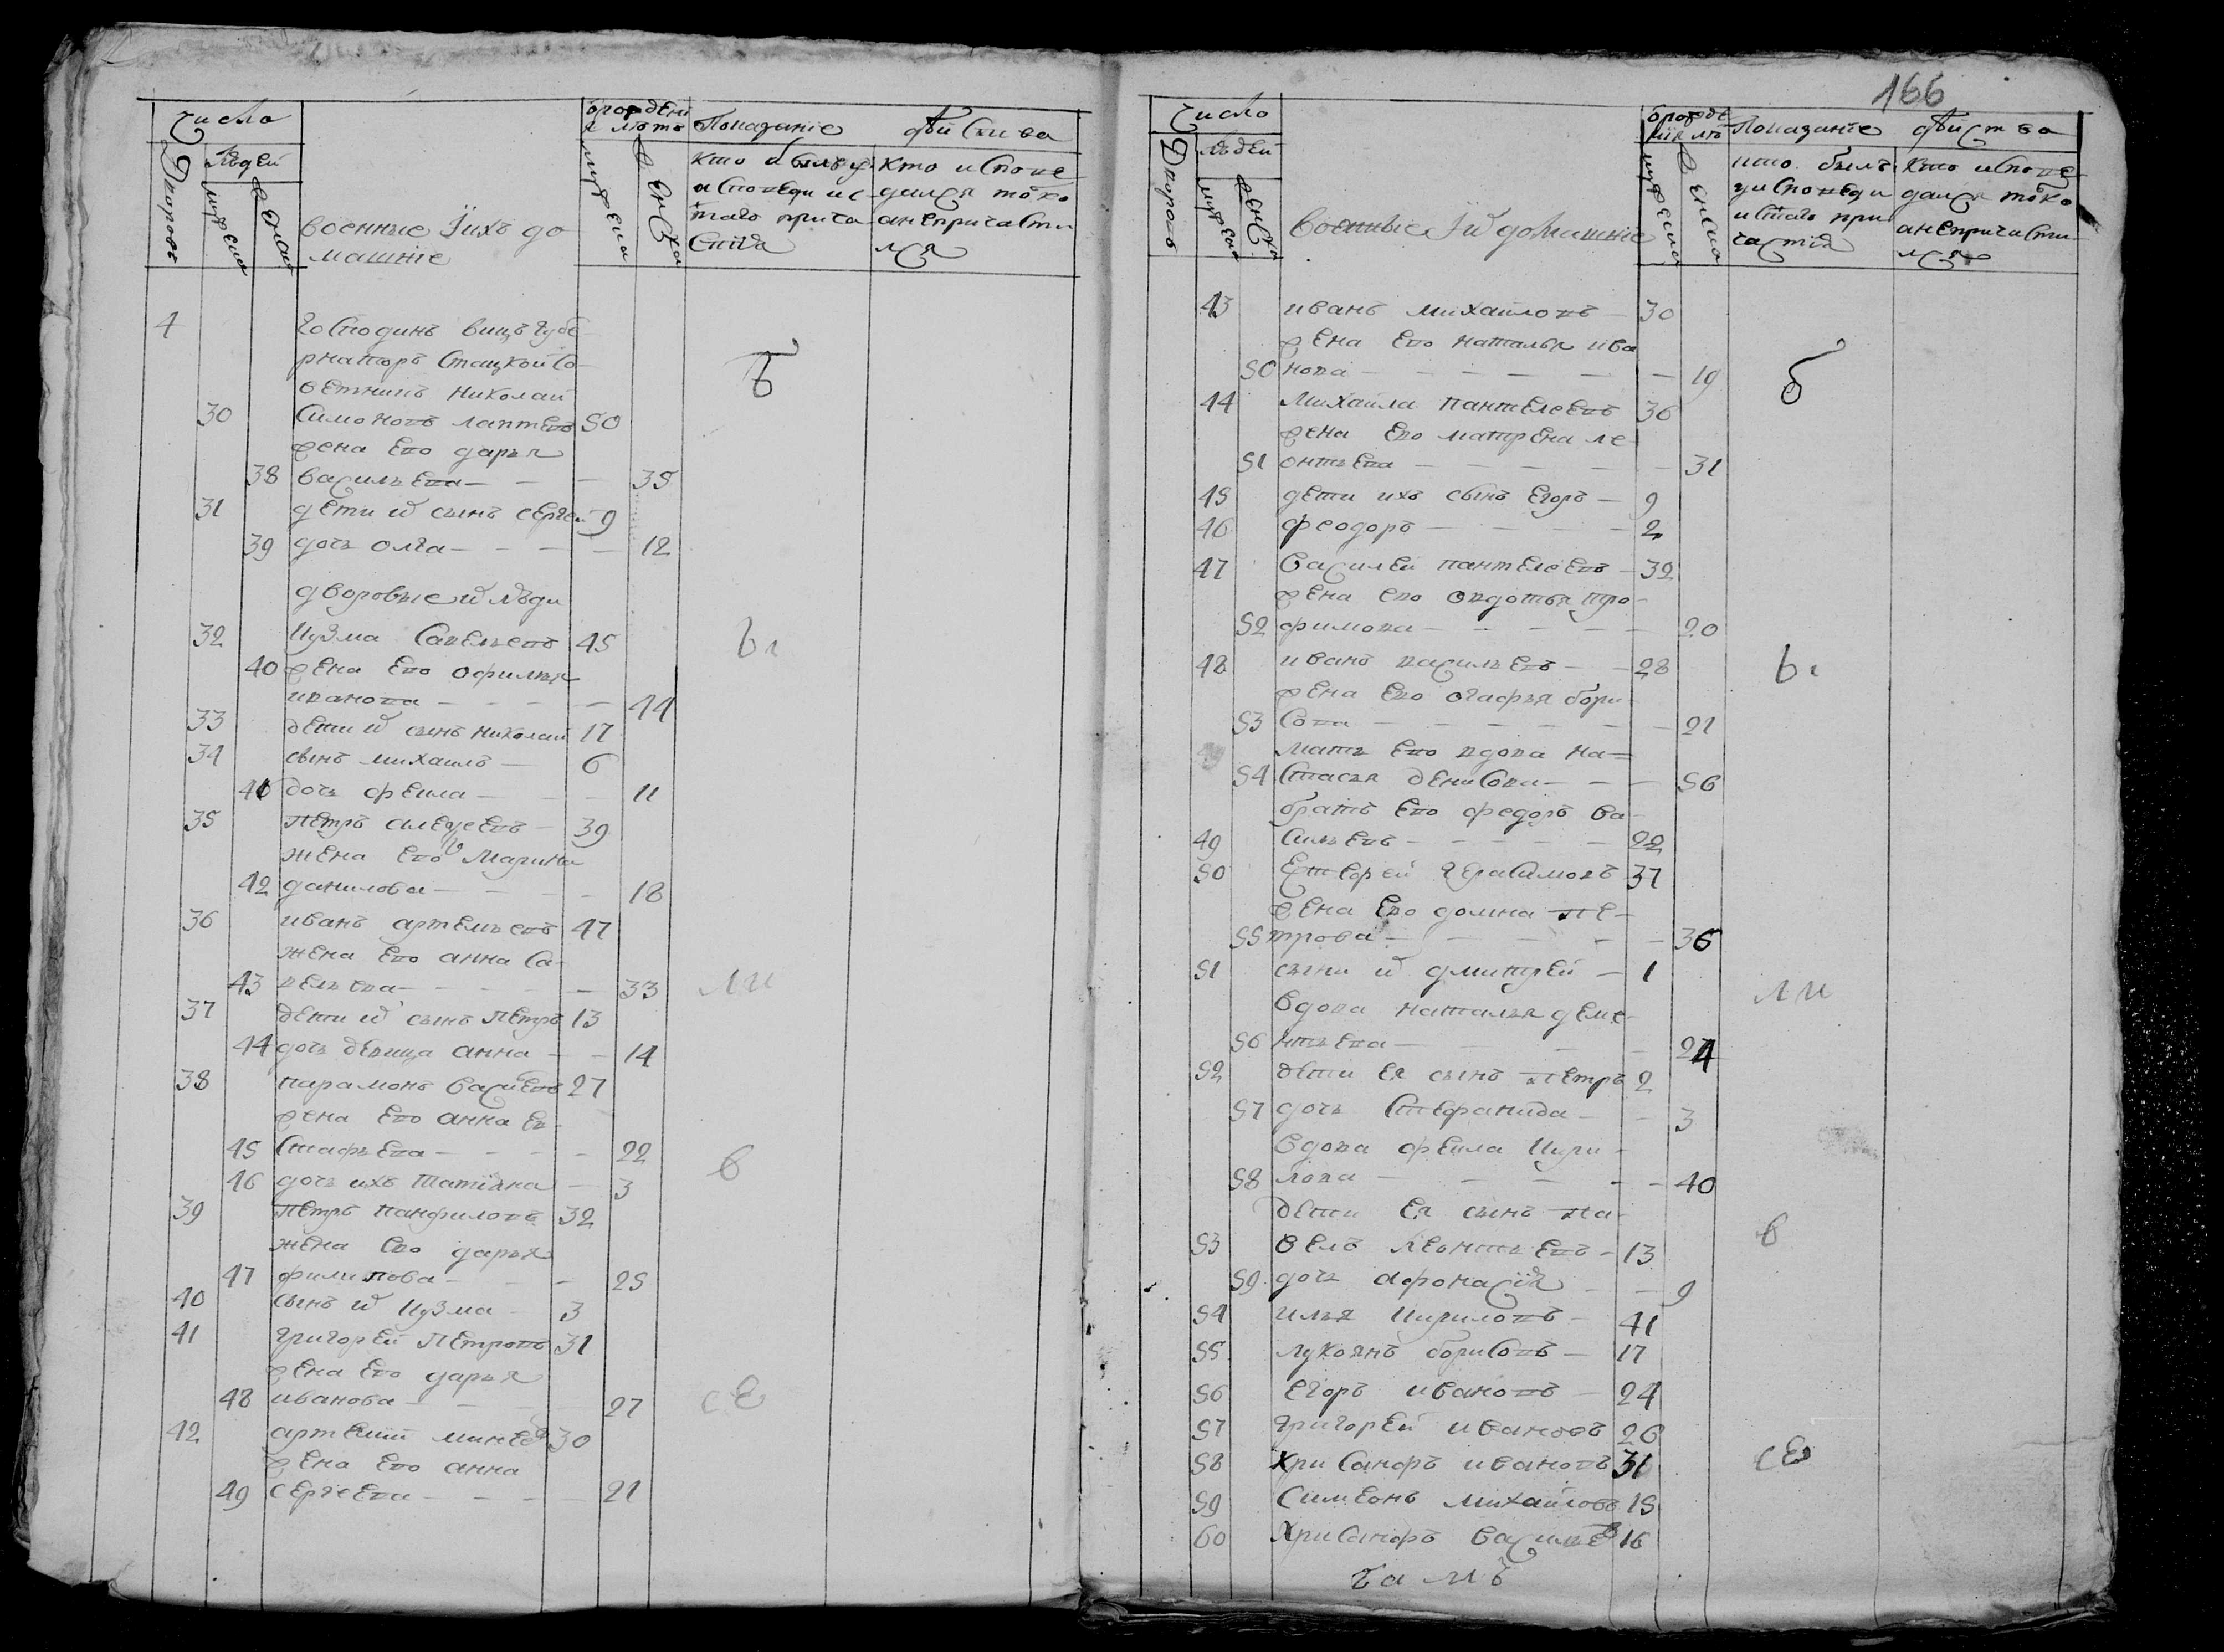 число
людей
Дворовъ
мужеска
женска
военные и ихъ до
машніе
отрожденї
я летъ
мужеска
женска
Показаніе действа
кто былъ у
исповеди ис
таго прича
стия
кто испове
дался токо
анепричасти
лся
4
господинъ вицъ губе
рнаторъ стацкой со
ветникъ николаи
30 симоновъ лаптевъ 50
жена ево дарья
38 васильева — — — 35
31 дети и сынъ сергеи 9
39 дочь олга — — — 12
дворовые и люди
32 кузма савельевъ 45
40 жена ево офимья
иванова — — — 44
33 дети и сынъ николаи 17
34 сынъ михаилъ — 6
41 дочь фекла — — 11
35 петръ алексеевъ — 39
жена ево марина
42 данилова — — — 18
36 иванъ артемьевъ 47
жена ево анна са
43 вельева — — — 33
37 дети и сынъ петръ 13
44 дочь девица анна — — 14
38 парамонъ васильевъ 27
жена ево анна ев
45 стафьева — — — 22
46 дочь ихъ татіяна — 3
39 петръ панфиловъ 32
жена ево дарья
47 филипова — — — 25
40 сынъ и кузма — 3
41 григорей петровъ 31
жена ево дарья
48 иванова — — — 27
42 артемий минеевъ 30
жена ево анна
49 сергеева — — — 21
б
ы
ли
в
се
166
число
людей
Дворовъ
мужеска
женска
военные и домашніе
отрожде
нія летъ
мужеска
женска
Показаніе действа
кто былъ
у исповеди
и стаго при
частія
кто испове
дался токо
анепричасти
лся
43 иванъ михаиловъ — 30
жена ево наталья ива
50 нова — — — — — 19
44 михаила пантелеевъ 36
жена ево матрена ле
51 онтьева — — — — 31
45 дети ихъ сынъ егоръ — 9
46 феодоръ — — — 2
47 василей пантелеевъ — 32
жена ево овдотья тро
52 фимова — — — — 20
48 иванъ васильевъ — — 28
жена ево огафья бори
53 сова — — — — — 21
мать ево вдова на=
54 стасья денисова — — — 56
братъ ево федоръ ва
49 сильевъ — — — — 22
50 естефей герасимовъ 37
жена ево домна пе
55 трова — — — — 36
51 сыни и дмитрей — 1
вдова наталья деме
56 нтьева — — — — 24
52 дети ея сынъ петръ 2
57 дочь стефанида — — 3
вдова фекла кири
58 лова — — — — 40
дети ея сынъ па
53 велъ леонтьевъ — 13
59 дочь афонасія — — 9
54 илья кириловъ — 41
55 лукоянъ борисовъ — 17
56 егоръ ивановъ — 24
57 григорей ивановъ 26
58 хрисанфъ ивановъ 31
59 симеонъ михаиловъ 15
60 хрисанфъ василье 16
б
ы
ли
в
се